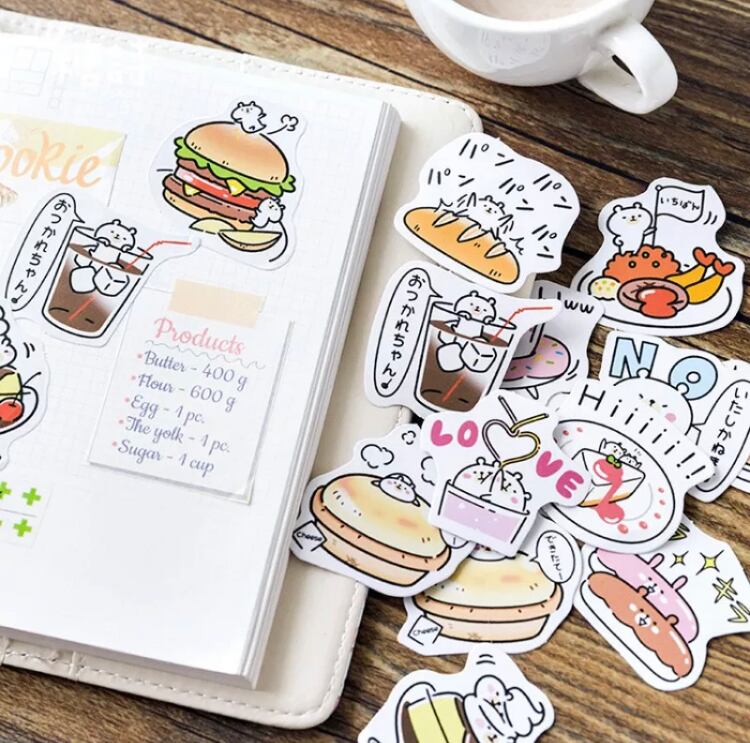 ookie
おつかれちゃん♪
Products
*Butter - 400 g
*Flour - 600 g
*Egg - 1 pc.
*The yolk - 1 pc.
*Sugar - 1 cup
パン パン パン パン パン パン
いちばん
おつかれちゃん♪
ww
NO
いたしかねま
Hiiiii!!
LOVE
Cheese
できたてー
Cheese
キラ